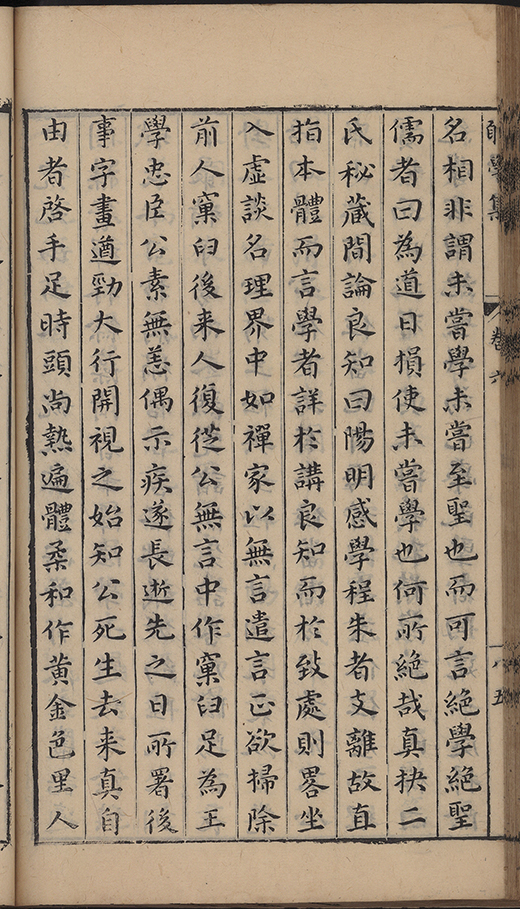 學集
卷六
名相非謂未嘗學未嘗至聖也而可言絕學絕聖
儒者曰為道日損使未嘗學也何所絕哉真抉二
氏秘藏間論良知曰陽明感學程朱者支離故直
指本體而言學者詳於講良知而於致處則畧坐
入虛談名理界中如禪家以無言遣言正欲掃除
前人窠臼後来人復從公無言中作窠臼足為王
學忠臣公素無恙偶示疾遂長逝先之日所署後
事字畫遒勁大行開視之始知公死生去来真自
由者啓手足時頭尚熱遍體柔和作黃金色里人